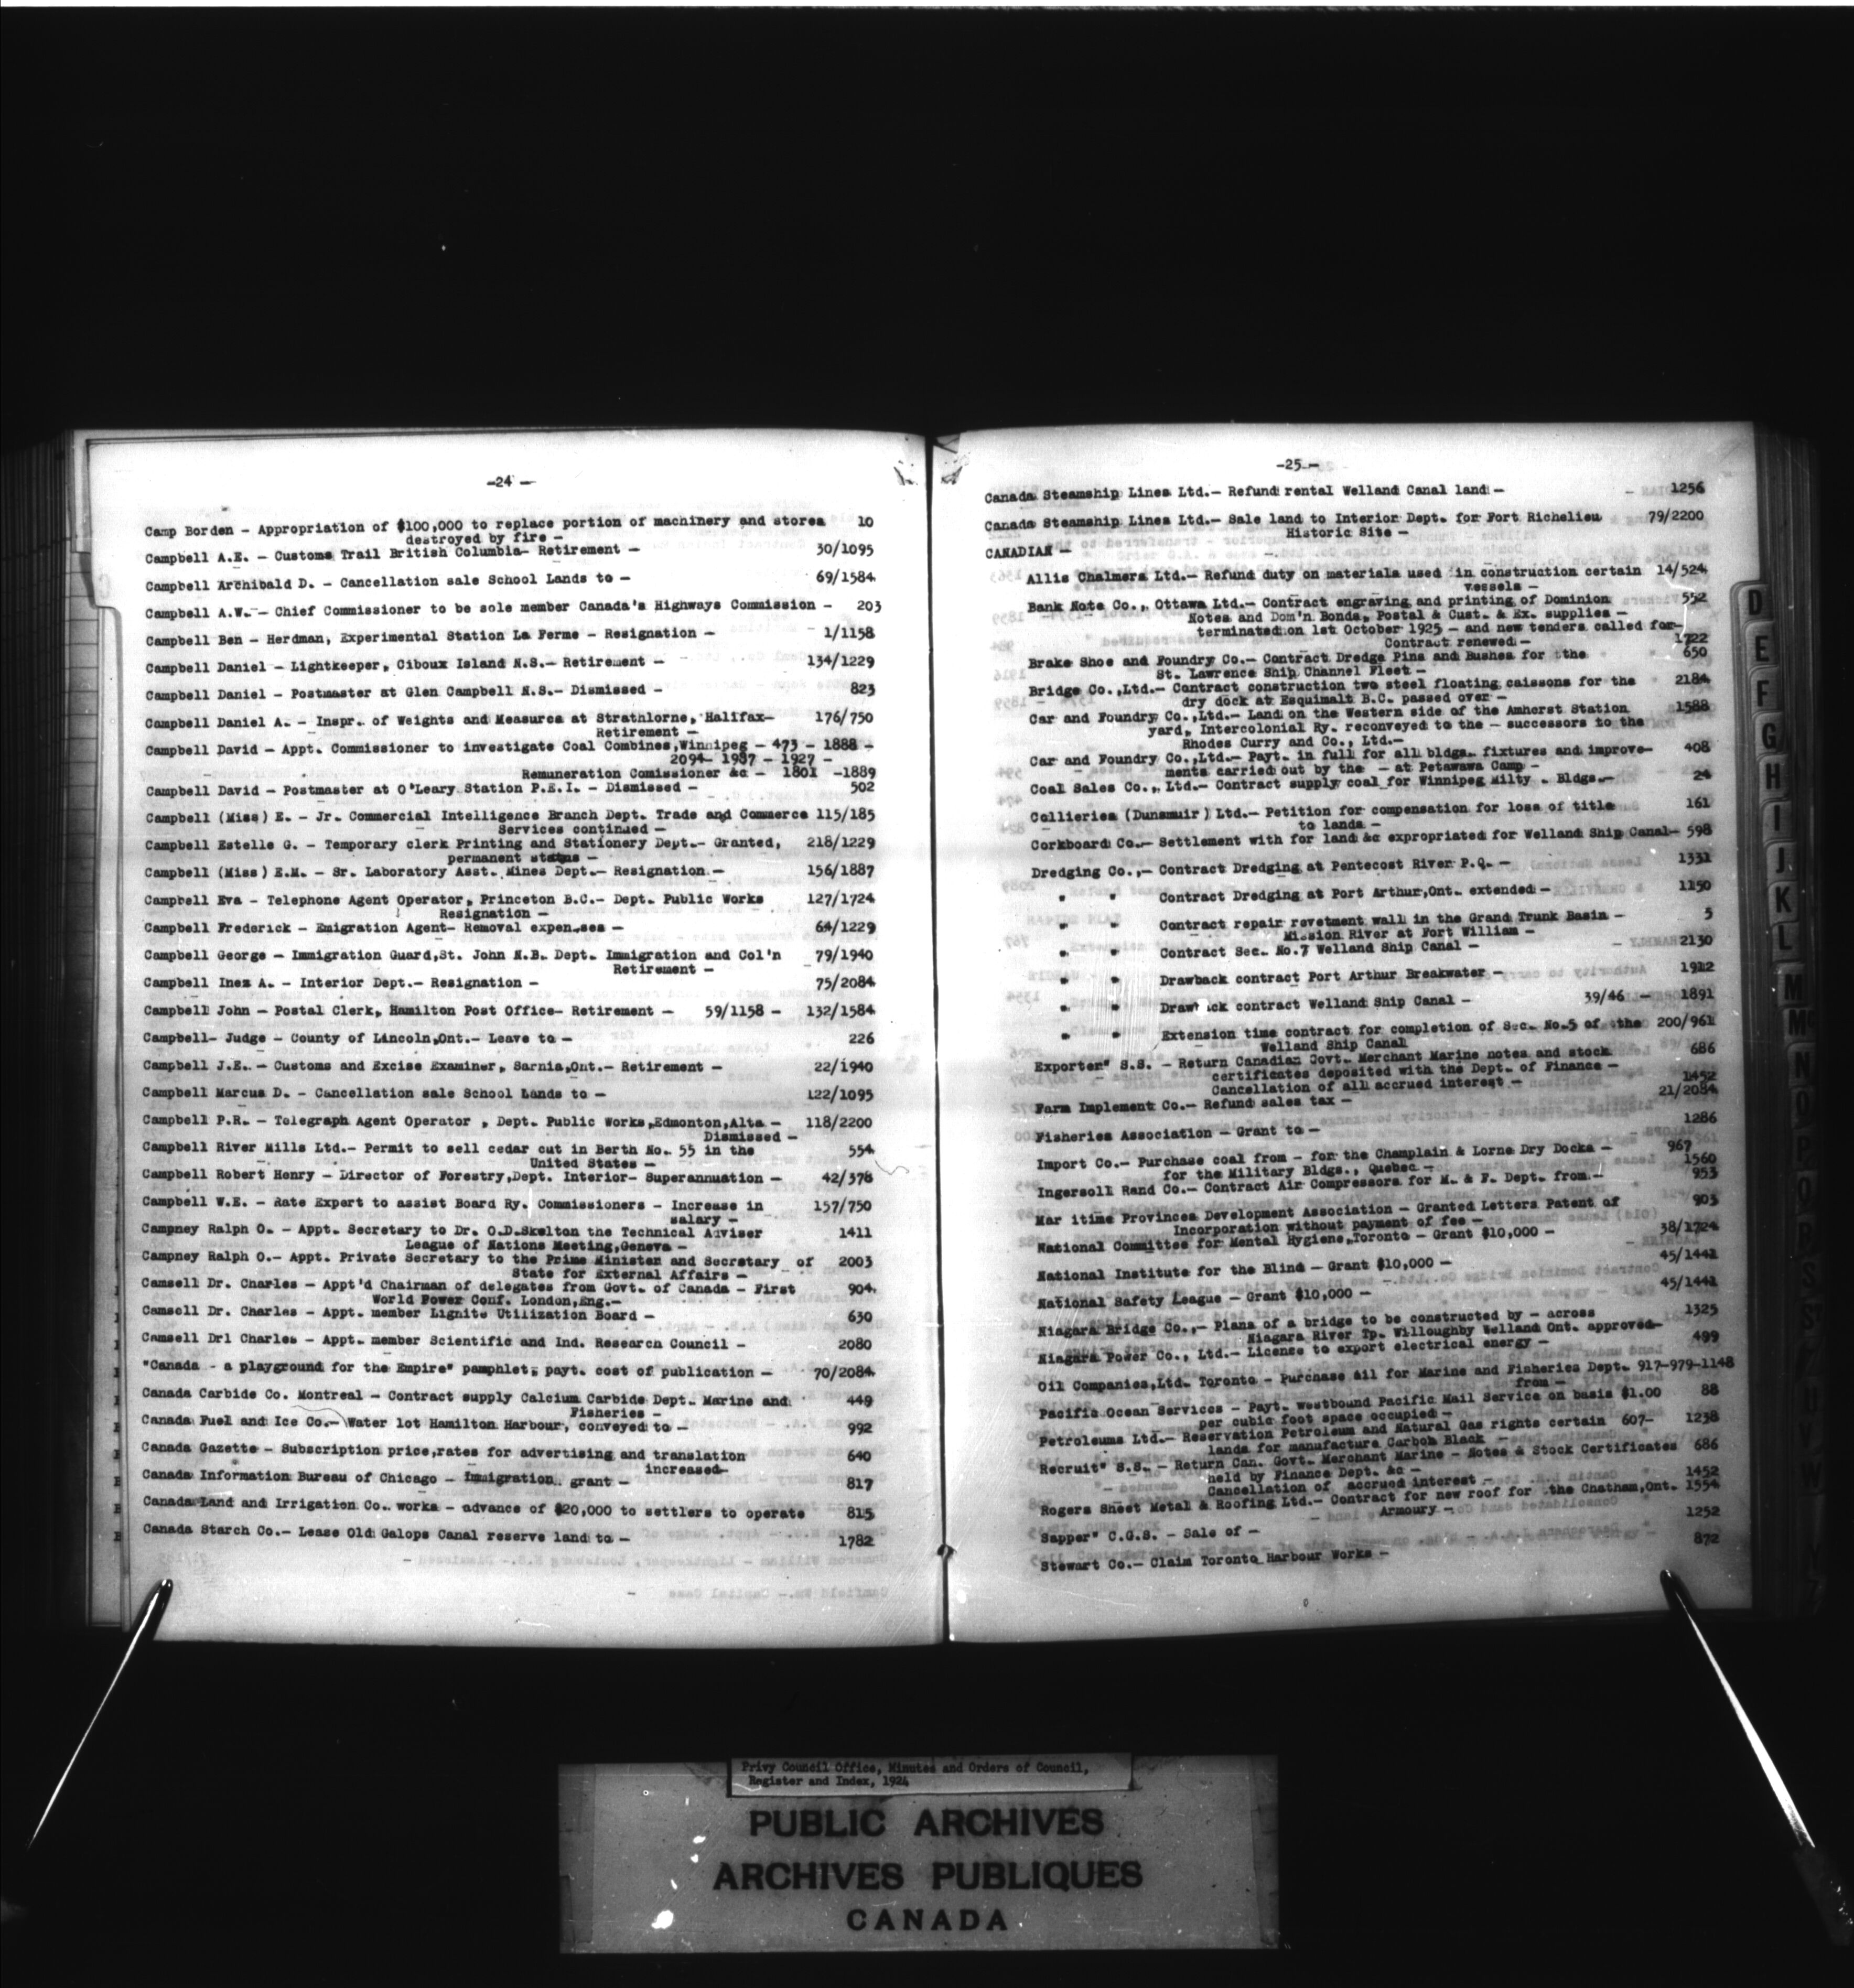 -24 -
Camp Borden - Appropriation of $100,000 to replace portion of machinery and stores 10
destroyed by fire -
Campbell A.E. - Customs Trail British Columbia- Retirement - 30/1095
Campbell Archibald D. - Cancellation sale School Lands to - 69/1584
Campbell A.W. - Chief Commissioner to be sole member Canada's Highways Commission - 203
Campbell Ben - Herdman, Experimental Station La Ferme - Resignation - 1/1158
Campbell Daniel - Lightkeeper, Ciboux Island N.S.- Retirement - 134/1229
Campbell Daniel - Postmaster at Glen Campbell N.S.- Dismissed - 823
Campbell Daniel A. - Inspr. of Weights and Measures at Strathlorne, Halifax- 176/750
Retirement -
Campbell David - Appt. Commissioner to investigate Coal Combines,Winnipeg - 473 - 1888 -
2094- 1937 - 1927 -
Remuneration Comissioner &c - 1801 -1889
Campbell David - Postmaster at O'Leary Station P.E.I. - Dismissed - 502
Campbell (Miss) E. - Jr. Commercial Intelligence Branch Dept. Trade and Commerce 115/185
Services continued -
Campbell Estelle G. - Temporary clerk Printing and Stationery Dept.- Granted, 218/1229
permanent status -
Campbell (Miss) E.M. - Sr. Laboratory Asst. Mines Dept.- Resignation - 156/1887
Campbell Eva - Telephone Agent Operator, Princeton B.C.- Dept. Public Works 127/1724
Resignation -
Campbell Frederick - Emigration Agent- Removal expenses - 64/1229
Campbell George - Immigration Guard,St. John N.B. Dept. Immigration and Col'n 79/1940
Retirement -
Campbell Inez A. - Interior Dept.- Resignation - 75/2084
Campbell John - Postal Clerk, Hamilton Post Office- Retirement - 59/1158 - 132/1584
Campbell- Judge - County of Lincoln,Ont.- Leave to - 226
Campbell J.E. - Customs and Excise Examiner, Sarnia,Ont.- Retirement - 22/1940
Campbell Marcus D. - Cancellation sale School Lands to - 122/1095
Campbell P.R. - Telegraph Agent Operator , Dept. Public Works,Edmonton,Alta - 118/2200
Dismissed -
Campbell River Mills Ltd.- Permit to sell cedar cut in Berth No. 55 in the 554
United States -
Campbell Robert Henry - Director of Forestry,Dept. Interior- Superannuation - 42/378
Campbell W.E. - Rate Expert to assist Board Ry. Commissioners - Increase in 157/750
salary -
Campney Ralph O. - Appt. Secretary to Dr. O.D.Skelton the Technical Adviser 1411
League of Nations Meeting,Geneva -
Campney Ralph O.- Appt. Private Secretary to the Prime Minister and Secretary of 2003
State for External Affairs -
Camsell Dr. Charles - Appt'd Chairman of delegates from Govt. of Canada - First 904
World Power Conf. London,Eng.-
Camsell Dr. Charles - Appt. member Lignite Utilization Board - 630
Camsell Drl Charles - Appt. member Scientific and Ind. Research Council - 2080
"Canada - a playground for the Empire" pamphlet, payt. cost of publication - 70/2084
Canada Carbide Co. Montreal - Contract supply Calcium Carbide Dept. Marine and 449
Fisheries -
Canada Fuel and Ice Co.- Water lot Hamilton Harbour, conveyed to - 992
Canada Gazette - Subscription price,rates for advertising and translation 640
increased-
Canada Information Bureau of Chicago - Immigration grant - 817
Canada Land and Irrigation Co. works - advance of $20,000 to settlers to operate 815
Canada Starch Co.- Lease Old Galops Canal reserve land to - 1782
-25 -
Canada Steamship Lines Ltd.- Refund rental Welland Canal land - 1256
Canada Steamship Lines Ltd.- Sale land to Interior Dept. for Fort Richelieu 79/2200
Historic Site -
CANADIAN -
Allis Chalmers Ltd.- Refund duty on materials used in construction certain 14/524
vessels -
Bank Note Co., Ottawa Ltd.- Contract engraving and printing of Dominion 552
Notes and Dom'n Bonds, Postal & Cust. & Ex. supplies -
terminated on 1st October 1925 - and new tenders called for-
Contract renewed - 1722
Brake Shoe and Foundry Co.- Contract Dredge Pins and Bushes for the 650
St. Lawrence Ship Channel Fleet -
Bridge Co.,Ltd.- Contract construction two steel floating caissons for the 2184
dry dock at Esquimalt B.C. passed over -
Car and Foundry Co.,Ltd.- Land on the Western side of the Amherst Station 1588
yard, Intercolonial Ry. reconveyed to the - successors to the
Rhodes Curry and Co., Ltd.-
Car and Foundry Co.,Ltd.- Payt. in full for all bldgs. fixtures and improve- 408
ments carried out by the - at Petawawa Camp -
Coal Sales Co., Ltd.- Contract supply coal for Winnipeg Milty . Bldgs.- 24
Collieries (Dunsmuir) Ltd.- Petition for compensation for loss of title 161
to lands -
Corkboard Co.- Settlement with for land &c expropriated for Welland Ship Canal- 598
Dredging Co.,- Contract Dredging at Pentecost River P.Q. - 1331
" " Contract Dredging at Port Arthur,Ont. extended - 1150
" " Contract repair revetment wall in the Grand Trunk Basin - 5
Mission River at Fort William -
" " Contract Sec. No.7 Welland Ship Canal - 2130
" " Drawback contract Port Arthur Breakwater - 1912
" " Drawback contract Welland Ship Canal - 39/46 - 1891
" " Extension time contract for completion of Sec. No.5 of the 200/961
Welland Ship Canal
Exporter" S.S. - Return Canadian Govt. Merchant Marine notes and stock 686
certificates deposited with the Dept. of Finance -
Cancellation of all accrued interest - 1452
Farm Implement Co.- Refund sales tax - 21/2084
Fisheries Association - Grant to - 1286
Import Co.- Purchase coal from - for the Champlain & Lorne Dry Docks - 967
for the Military Bldgs., Quebec - 1560
Ingersoll Rand Co.- Contract Air Compressors for M. & F. Dept. from.- 953
Mar itime Provinces Development Association - Granted Letters Patent of 903
Incorporation without payment of fee -
National Committee for Mental Hygiene,Toronto - Grant $10,000 - 38/1724
National Institute for the Blind - Grant $10,000 - 45/1441
National Safety League - Grant $10,000 - 45/1441
Niagara Bridge Co.,- Plans of a bridge to be constructed by - across 1325
Niagara River Tp. Willoughby Welland Ont. approved-
Niagara Power Co., Ltd.- License to export electrical energy - 499
Oil Companies,Ltd. Toronto - Purchase oil for Marine and Fisheries Dept. 917-979-1148
from -
Pacific Ocean Services - Payt. westbound Pacific Mail Service on basis $1.00 88
per cubic foot space occupied -
Petroleums Ltd.- Reservation Petroleum and Natural Gas rights certain 607- 1238
lands for manufacture Carbon Black -
Recruit" S.S. - Return Can. Govt. Merchant Marine - Notes & Stock Certificates 686
held by Finance Dept. &c -
Cancellation of accrued interest - 1452
Rogers Sheet Metal & Roofing Ltd.- Contract for new roof for the Chatham,Ont. 1554
Armoury -
Sapper" C.G.S. - Sale of - 1252
Stewart Co.- Claim Toronto Harbour Works - 872
D
E
F
G
H
I
J
K
L
M
Mc
N
O
P
Q
R
S
Privy Council Office, Minutes and Orders of Council,
Register and Index, 1924
PUBLIC ARCHIVES
ARCHIVES PUBLIQUES
CANADA